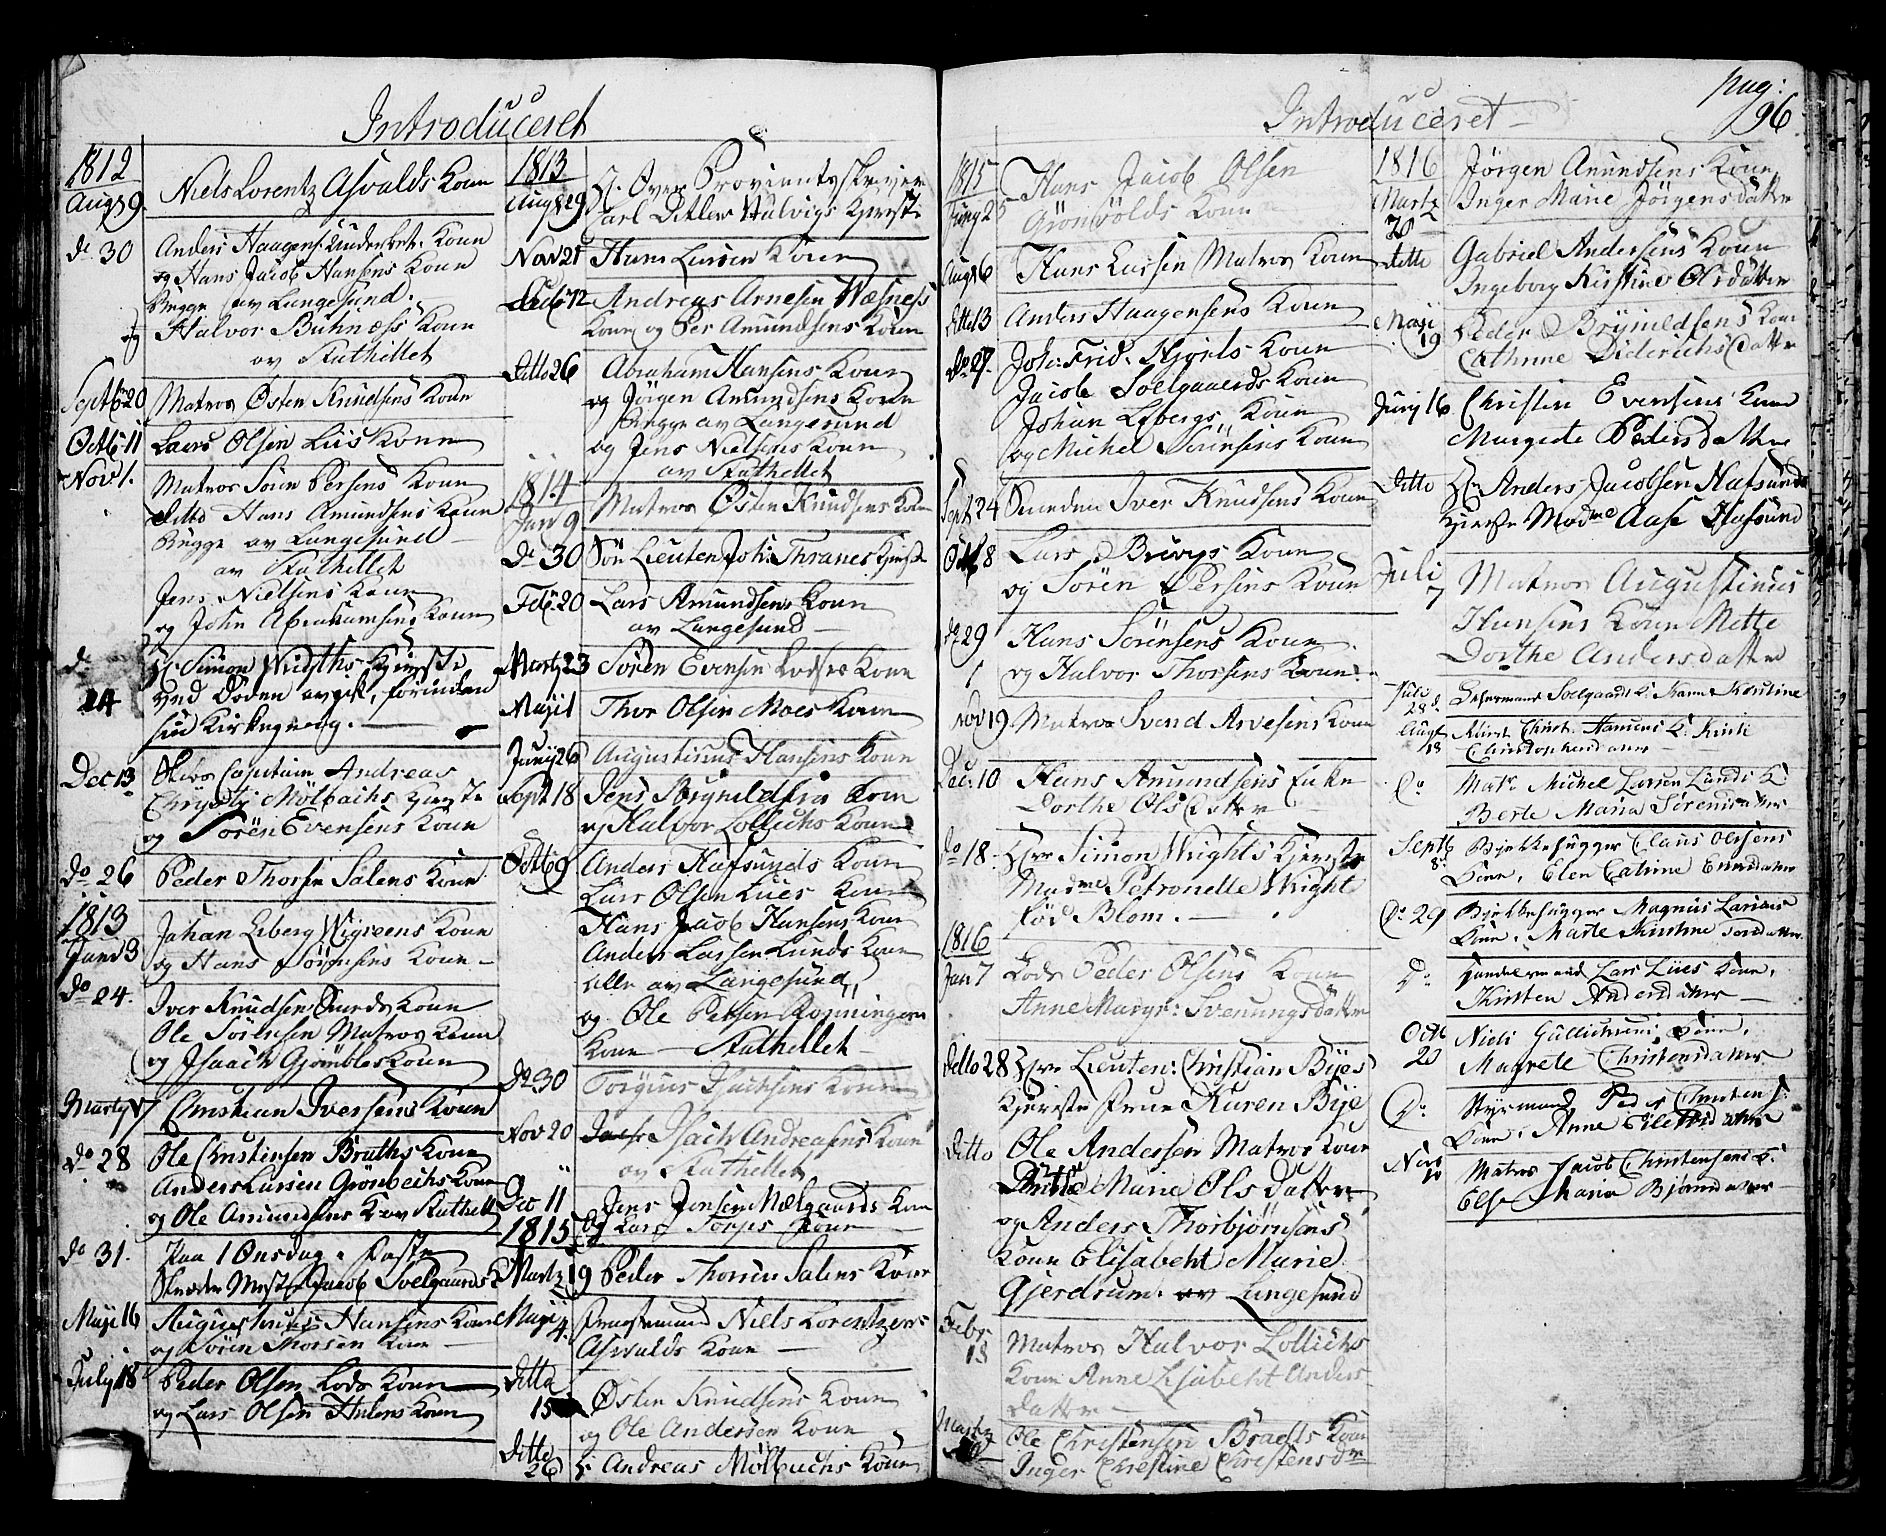 Introduceret
1812
Aug 9. Niels Lorentz Asvalds Kone
do 30 Anders Haagens. Kone
og Hans Jacob Hansens Kone
Begge av Langesund.
og Halvor Buhness Kone
av Stathellet
Septb 20 Matros Østen Knudsens Kone
Octb 11 Lars Olsen Lies Kone
Nov 1. Matros Sören Persens Kone
Ditto Hans Amundsens Kone
Begge av Langesund
av Stathellet
Jens Nielsens Kone
og John Abrahamsens Kone
do 24 Hr Simon Wrigths Kjereste
ved Döden avgik, forinden
sin Kirkegang.
Dec 13 Skibs Capitain Andreas
Chrysty Mölbachs Kjereste
og Sören Evensens Kone
do 26 Peder Thorsen Salens Kone
1813
Janv 3 Johan Leberg Wigreens Kone
og Hans Sörensens Kone
do 24. Iver Knudsen Kone
Ole Matros Kone
og Isaach Gjømbles Kone
Marty 7 Christian Iversens Kone
do 28 Ole Christensen Braths Kone
Anders Larsen Grönbechs Kone
og Ole Amundsens K. av Stathell
do 31. Paa 1 Onsdag i Faste
Skræder Mester Jacob Soelgaards K
Maji 16 Augustinus Hansens Kone
og Sören Thorsen Kone
July 18 Peder Olsen Lods Kone
og Lars Olsen Kone
1813
Aug 29 Hr Over Proviantskriver
Carl Ditlev Hulvigs Kjereste
Nov 21 Hans Larsen Kone
Decb 12 Andreas Arnesen Væsness
Kone og Per Amundsens Kone
Ditto 26 Abraham Hansens Kone
og Jörgen Amundsens Kone
Begge av Langesund
og Jens Nielsens Kone
av Stathellet
1814
Janv 9 Matros Østen Knudsens Kone
do 30 Sön Lieuten Joh: Thranes Kjereste
Feb. 20 Lars Amundsens Kone
av Langesund
Marty 23 Sören Evensen Lodses Kone
Maji 1 Thor Olsen Moes Kone
Junij 26 Augustinus Hansens Kone
Sept 18 Jens Brynildsen Kone
og Halvor Lollichs Kone
Octb 9 Anders Hafsunds Kone
Lars Olsen Lies Kone
Hans Jacob Hansens Kone
Anders Larsen Lunds Kone
alle av Langesund
og Ole Petersen Rønningen
Kone Stathellet
do 30 Torgius Isachsens Kone
Nov 20 Isach Andreasens Kone
av Stathellet
Dec 11 Jens Jensen Mælgaards Kone
1815 og Lars Torses Kone
Marty 19 Peder Thorsen Salens Kone
Maji 4. Niels Lorentzens
Asvalds Kone
Ditto
15 Østen Knudsens Kone
og Ole Andersen Kone
Ditto
26 Hr Andreas Mölbachs Kone
pag:
96
Introduceret
1815
Juny 25 Hans Jacob Olsen
Grönvolds Kone
Aug 6 Hans Larsen Matros Kone
Ditto 13 Anders Haagensens Kone
do 27. Joh: Frid: Kone
Jacob Soelgaards Kone
Johan Lebergs Kone
og Michel Sörensens Kone
Sept 24 Iver Knudsens Kone
Octb 8 Lars Kone
og Sören Persens Kone
do 29 Hans Sörensens Kone
og Halvor Thorsens Kone
Nov 19. Matros Svend Arvesens Kone
Dec. 10 Hans Amundsens Enke
Dorthe Ols Datter
do 18. Hrr Simon Wrights Kjereste
Madme Petronelle Wright
föd Blom.
1816
Jan 7 Lods Peder Olsens Kone
Anne Margr: Svenungsdatter
Ditto 28 Hrr Lieuten: Christian Byes
Kjereste Frue Karen Bye
Ditto Ole Andersen Matros Kone
Marie Ols Datter
og Anders Thorbjørnsens
Kone Elisabeht Marie
Gjerdrum. av Langesund
Febr.
18 Matros Halvor Lollichs
Kone Anne Lisabeht Anders
datter
Marty
Ole Christensen Braths Kone
Inger Christine Christens dr
1816
Martz
20 Jörgen Amundsens Kone
Inger Marie Jörgensdatter
ditto Gabriel Andersens Kone
Ingeborg Kirstine Olsdatter
Maji
19 Peder Brynildsens Kone
Cathrine Diderichs Datter
Junij 16 Christen Evensens Kone
Margrete Pedersdatter
Ditto Hr. Anders Jacobsen Hafsunds
Kjerste Madme Aase Hafsund
Juli
7 Matros Augustinus
Hansens Kone Mette
Dorthe Andersdatter
Juli
28 d. Soelgaards K. Karen Kirstine
Aug
18 Christ. Hansens K. Kirsti
Christophersdatter
do Matr Michel Larsen Lunds K.
Berte Maria Sörensdatter
Septb
8 Bjelkehugger Claus Olsens
Kone, Elen Catrine Evensdatter
do 29 Bjelkehugger Magnus Larsens
Kone, Marte Kirstine
do Handelsmand Lars Lües Kone,
Kirsten Andersdatter
Octb
20 Niels Gullichsens Kone,
Magrete Christensdatter
do Styrmand Peder Christens
Kone, Anne
Nov
10 Matros Jacob Christensens K.
Else Maria Bjørnsdatter